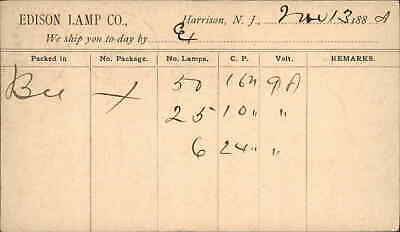 EDISON LAMP CO., Harrison, N. J., Nov 13 188
We ship you to-day by Ex
Packed in No. Package. No. Lamps. C. P. Volt. REMARKS.
50 16
25 10 " "
6 24 " "